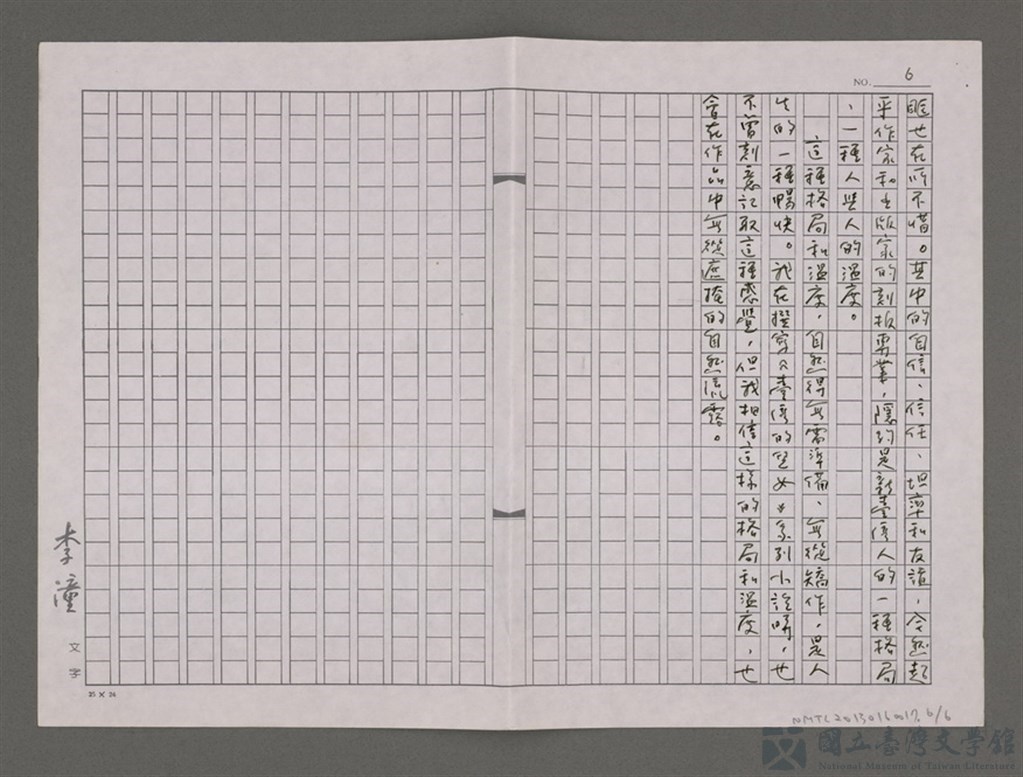 NO. 6
眶也在所不惜。其中的自信、信任、坦率和友誼,令然起
乎作家和出版家的刻板專業,隱約是新臺灣人的一種格局
、一種人與人的溫度。
這種格局和溫度,自然得無需準備、無從矯作,是人
生的一種暢快。我在撰寫《臺灣的兒女》系列小說時,也
不曾刻意記取這種感覺,但我相信這樣的格局和溫度,也
會在作品中無從遮掩的自然流露。
李潼
文字
25 × 24
NMTL20130160017. 6/6
國立臺灣文學館
National Museum of Taiwan Literature